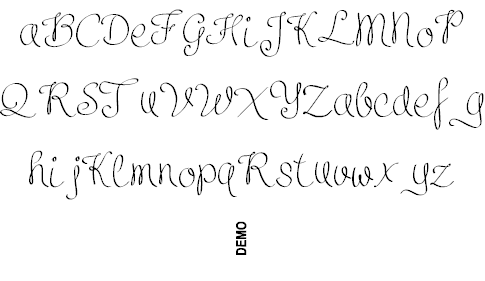 aBCDeFGHiJKLMNoP
QRSTuVWXYZabcdefg
hijKlmnopqRstuvwxyz
DEMO